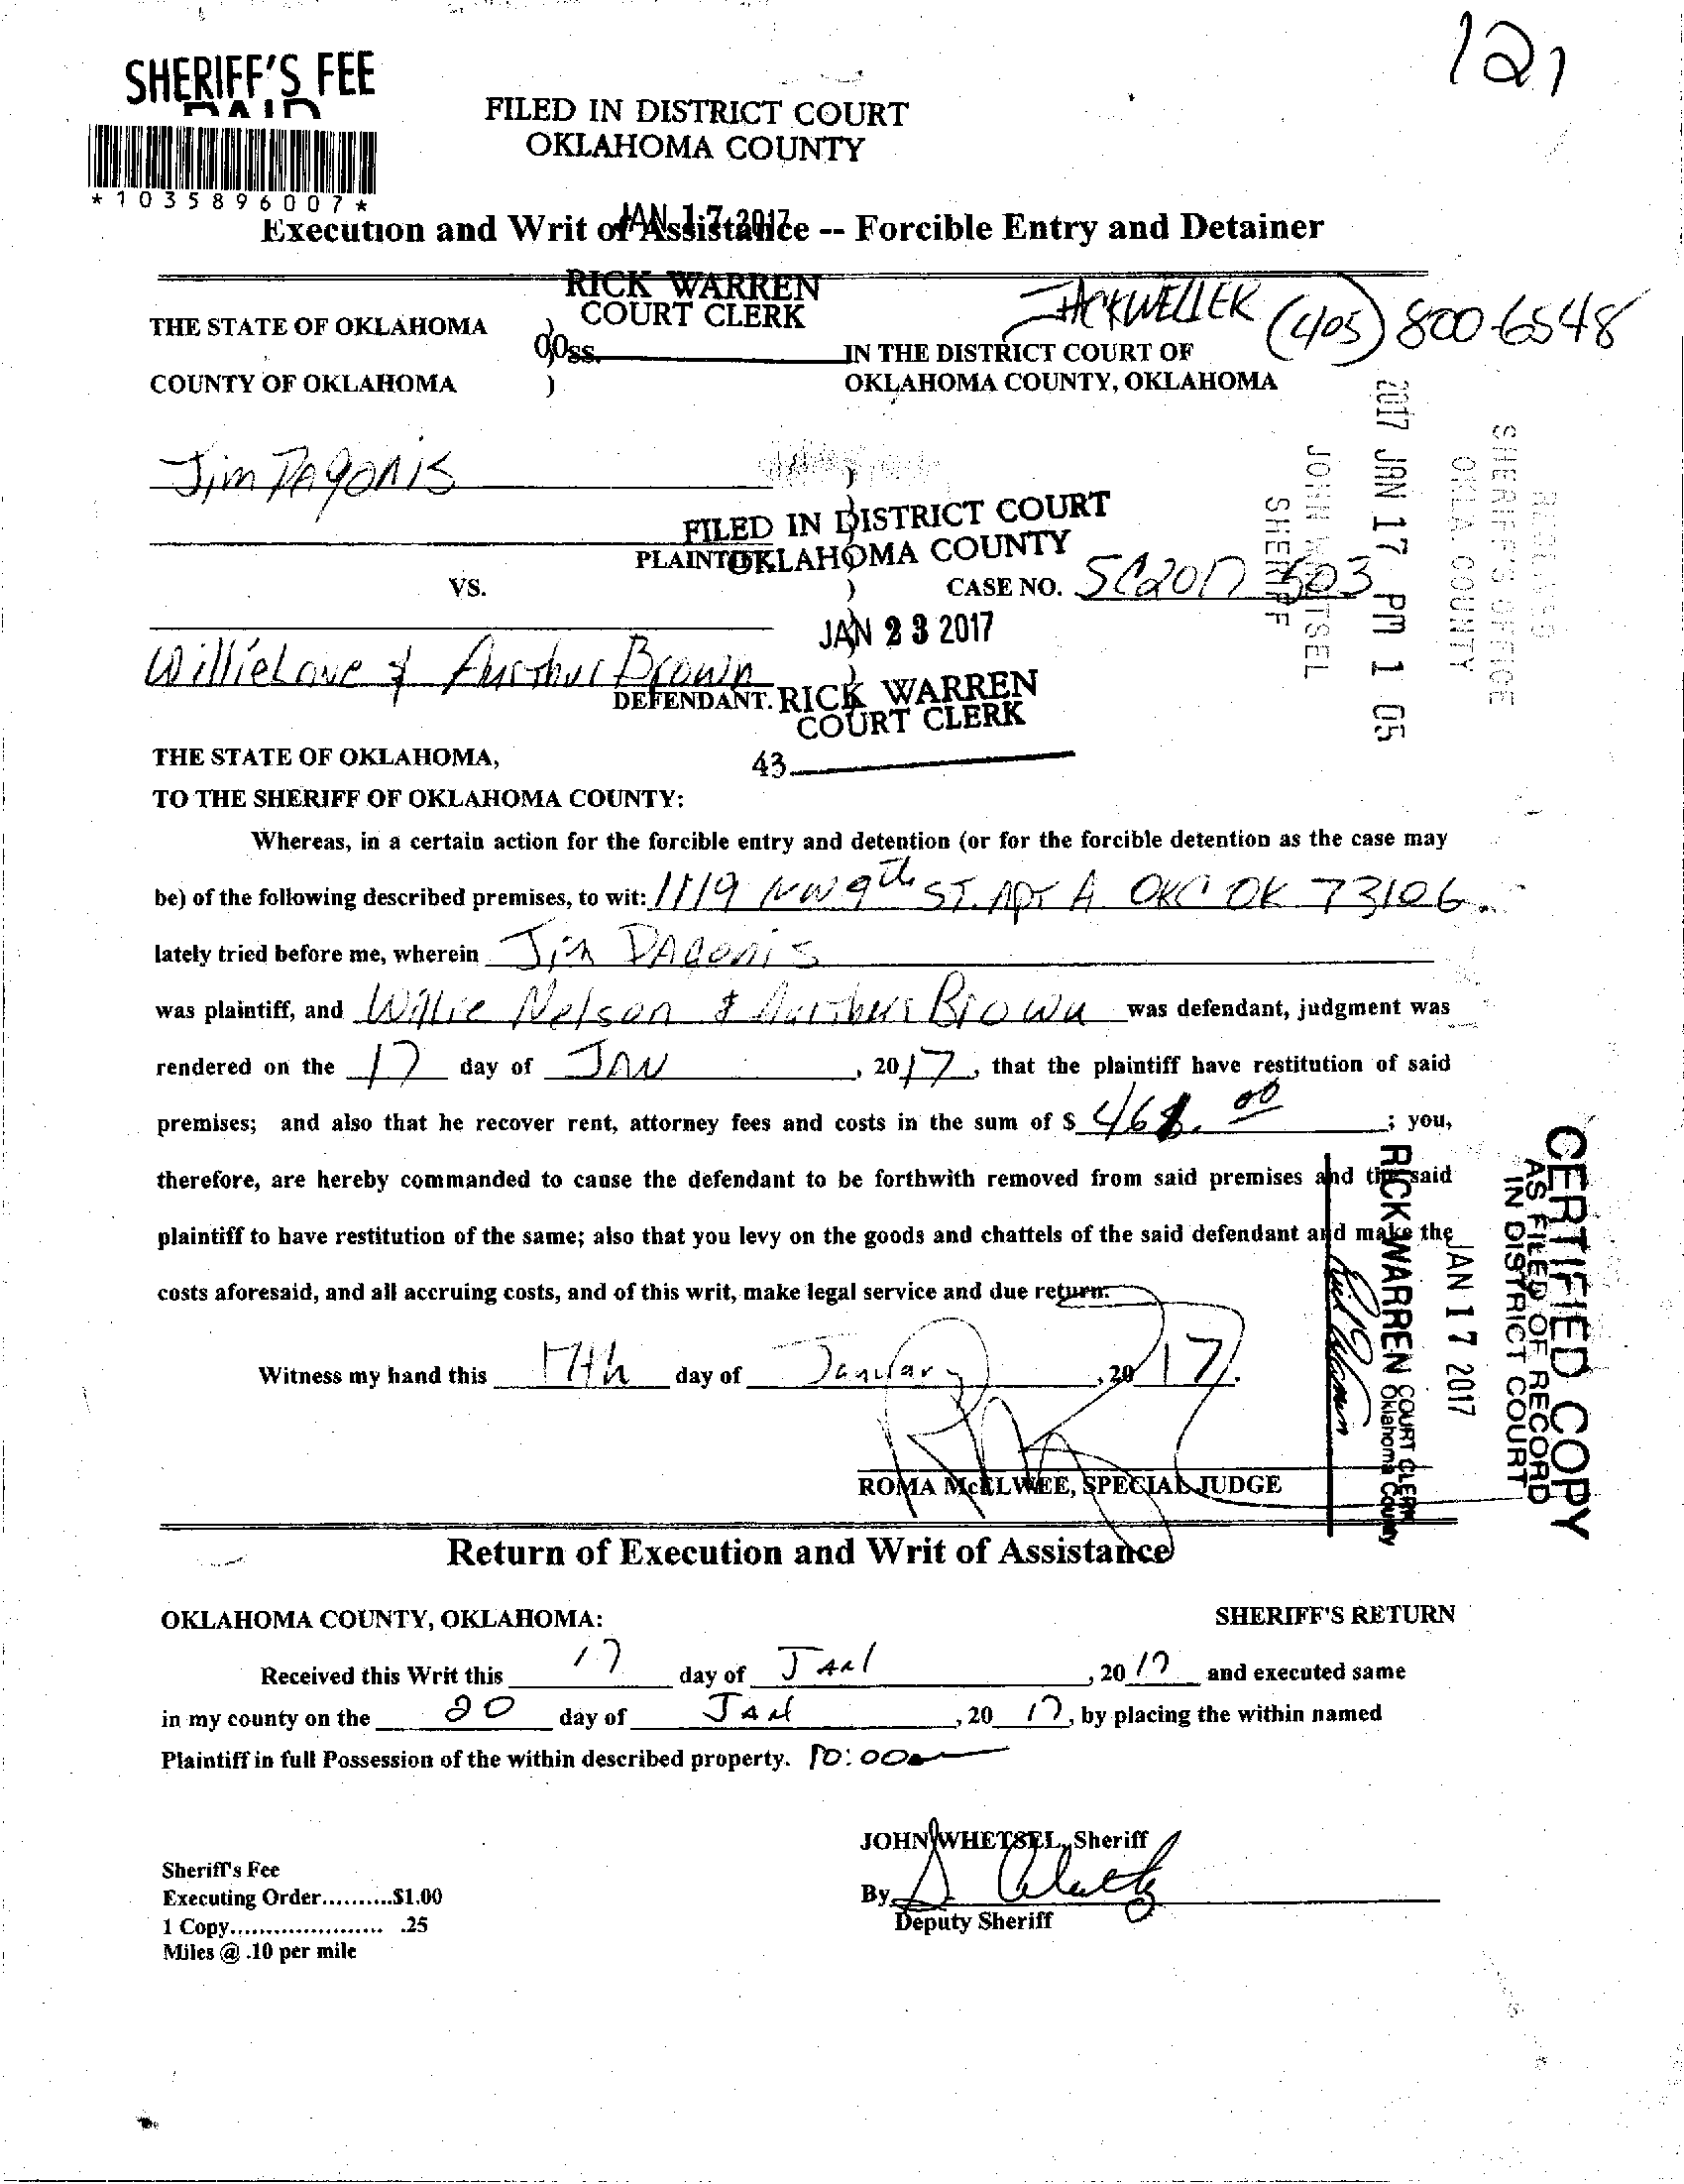 121
SHERIFF'S FEE
PAID
FILED IN DISTRICT COURT
OKLAHOMA COUNTY
*1035896007*
JAN 17 2017
Execution and Writ of Assistance -- Forcible Entry and Detainer
RICK WARREN
COURT CLERK
JACK WELLER (405) 800-6548
THE STATE OF OKLAHOMA )
) ss.
IN THE DISTRICT COURT OF
COUNTY OF OKLAHOMA )
OKLAHOMA COUNTY, OKLAHOMA
SHERIFF'S OFFICE
OKLA. COUNTY
2017 JAN 17 PM 1 05
JOHN WHETSEL
SHERIFF
Jim Dagonis
FILED IN DISTRICT COURT
OKLAHOMA COUNTY
PLAINTIFF
VS.
CASE NO. SC2017 503
JAN 23 2017
Willie Love & Aurthur Brown
DEFENDANT.
RICK WARREN
COURT CLERK
43
THE STATE OF OKLAHOMA,
TO THE SHERIFF OF OKLAHOMA COUNTY:
Whereas, in a certain action for the forcible entry and detention (or for the forcible detention as the case may
be) of the following described premises, to wit: 1119 NW 9th ST. APT A OKC OK 73106
lately tried before me, wherein Jim DAGONIS
was plaintiff, and Willie Nelson & Aurthur Brown was defendant, judgment was
rendered on the 17 day of JAN, 2017, that the plaintiff have restitution of said
premises; and also that he recover rent, attorney fees and costs in the sum of $ ; you,
therefore, are hereby commanded to cause the defendant to be forthwith removed from said premises and the said
plaintiff to have restitution of the same; also that you levy on the goods and chattels of the said defendant and make the
costs aforesaid, and all accruing costs, and of this writ, make legal service and due return.
Witness my hand this 17th day of January, 2017.
ROMA McELWEE, SPECIAL JUDGE
CERTIFIED COPY
AS FILED OF RECORD
IN DISTRICT COURT
JAN 17 2017
RICK WARREN COURT CLERK
Oklahoma County
Return of Execution and Writ of Assistance
OKLAHOMA COUNTY, OKLAHOMA:
SHERIFF'S RETURN
Received this Writ this 17 day of JAN, 2017 and executed same
in my county on the 20 day of JAN, 2017, by placing the within named
Plaintiff in full Possession of the within described property. 10:00
JOHN WHETSEL, Sheriff
By
Deputy Sheriff
Sheriff's Fee
Executing Order..........$1.00
1 Copy...................... .25
Miles @ .10 per mile